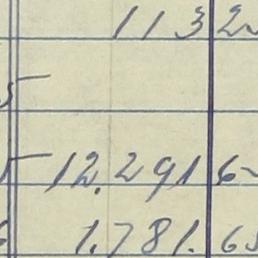 1132
5
5 12.291 6
6 1.781. 65